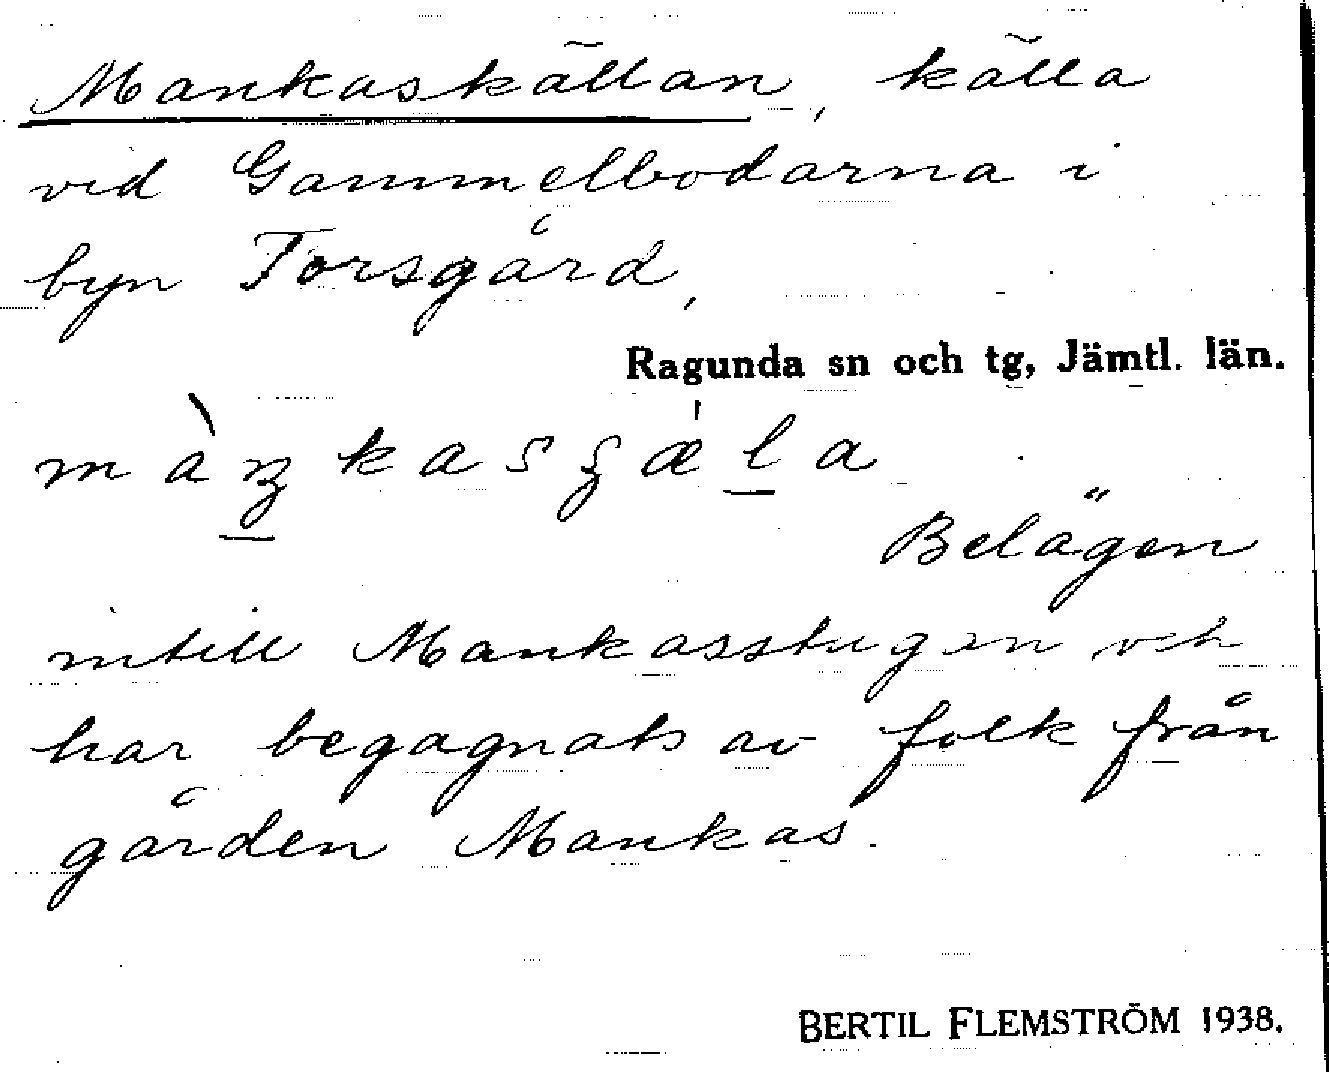 Mankaskällan, källa
vid Gammelbodarna i
byn Torsgård,
Ragunda sn och tg, Jämtl. län.
Belägen
intill Mankasstugan och
har begagnats av folk från
gården Mankas.
BERTIL FLEMSTRÖM 1938.